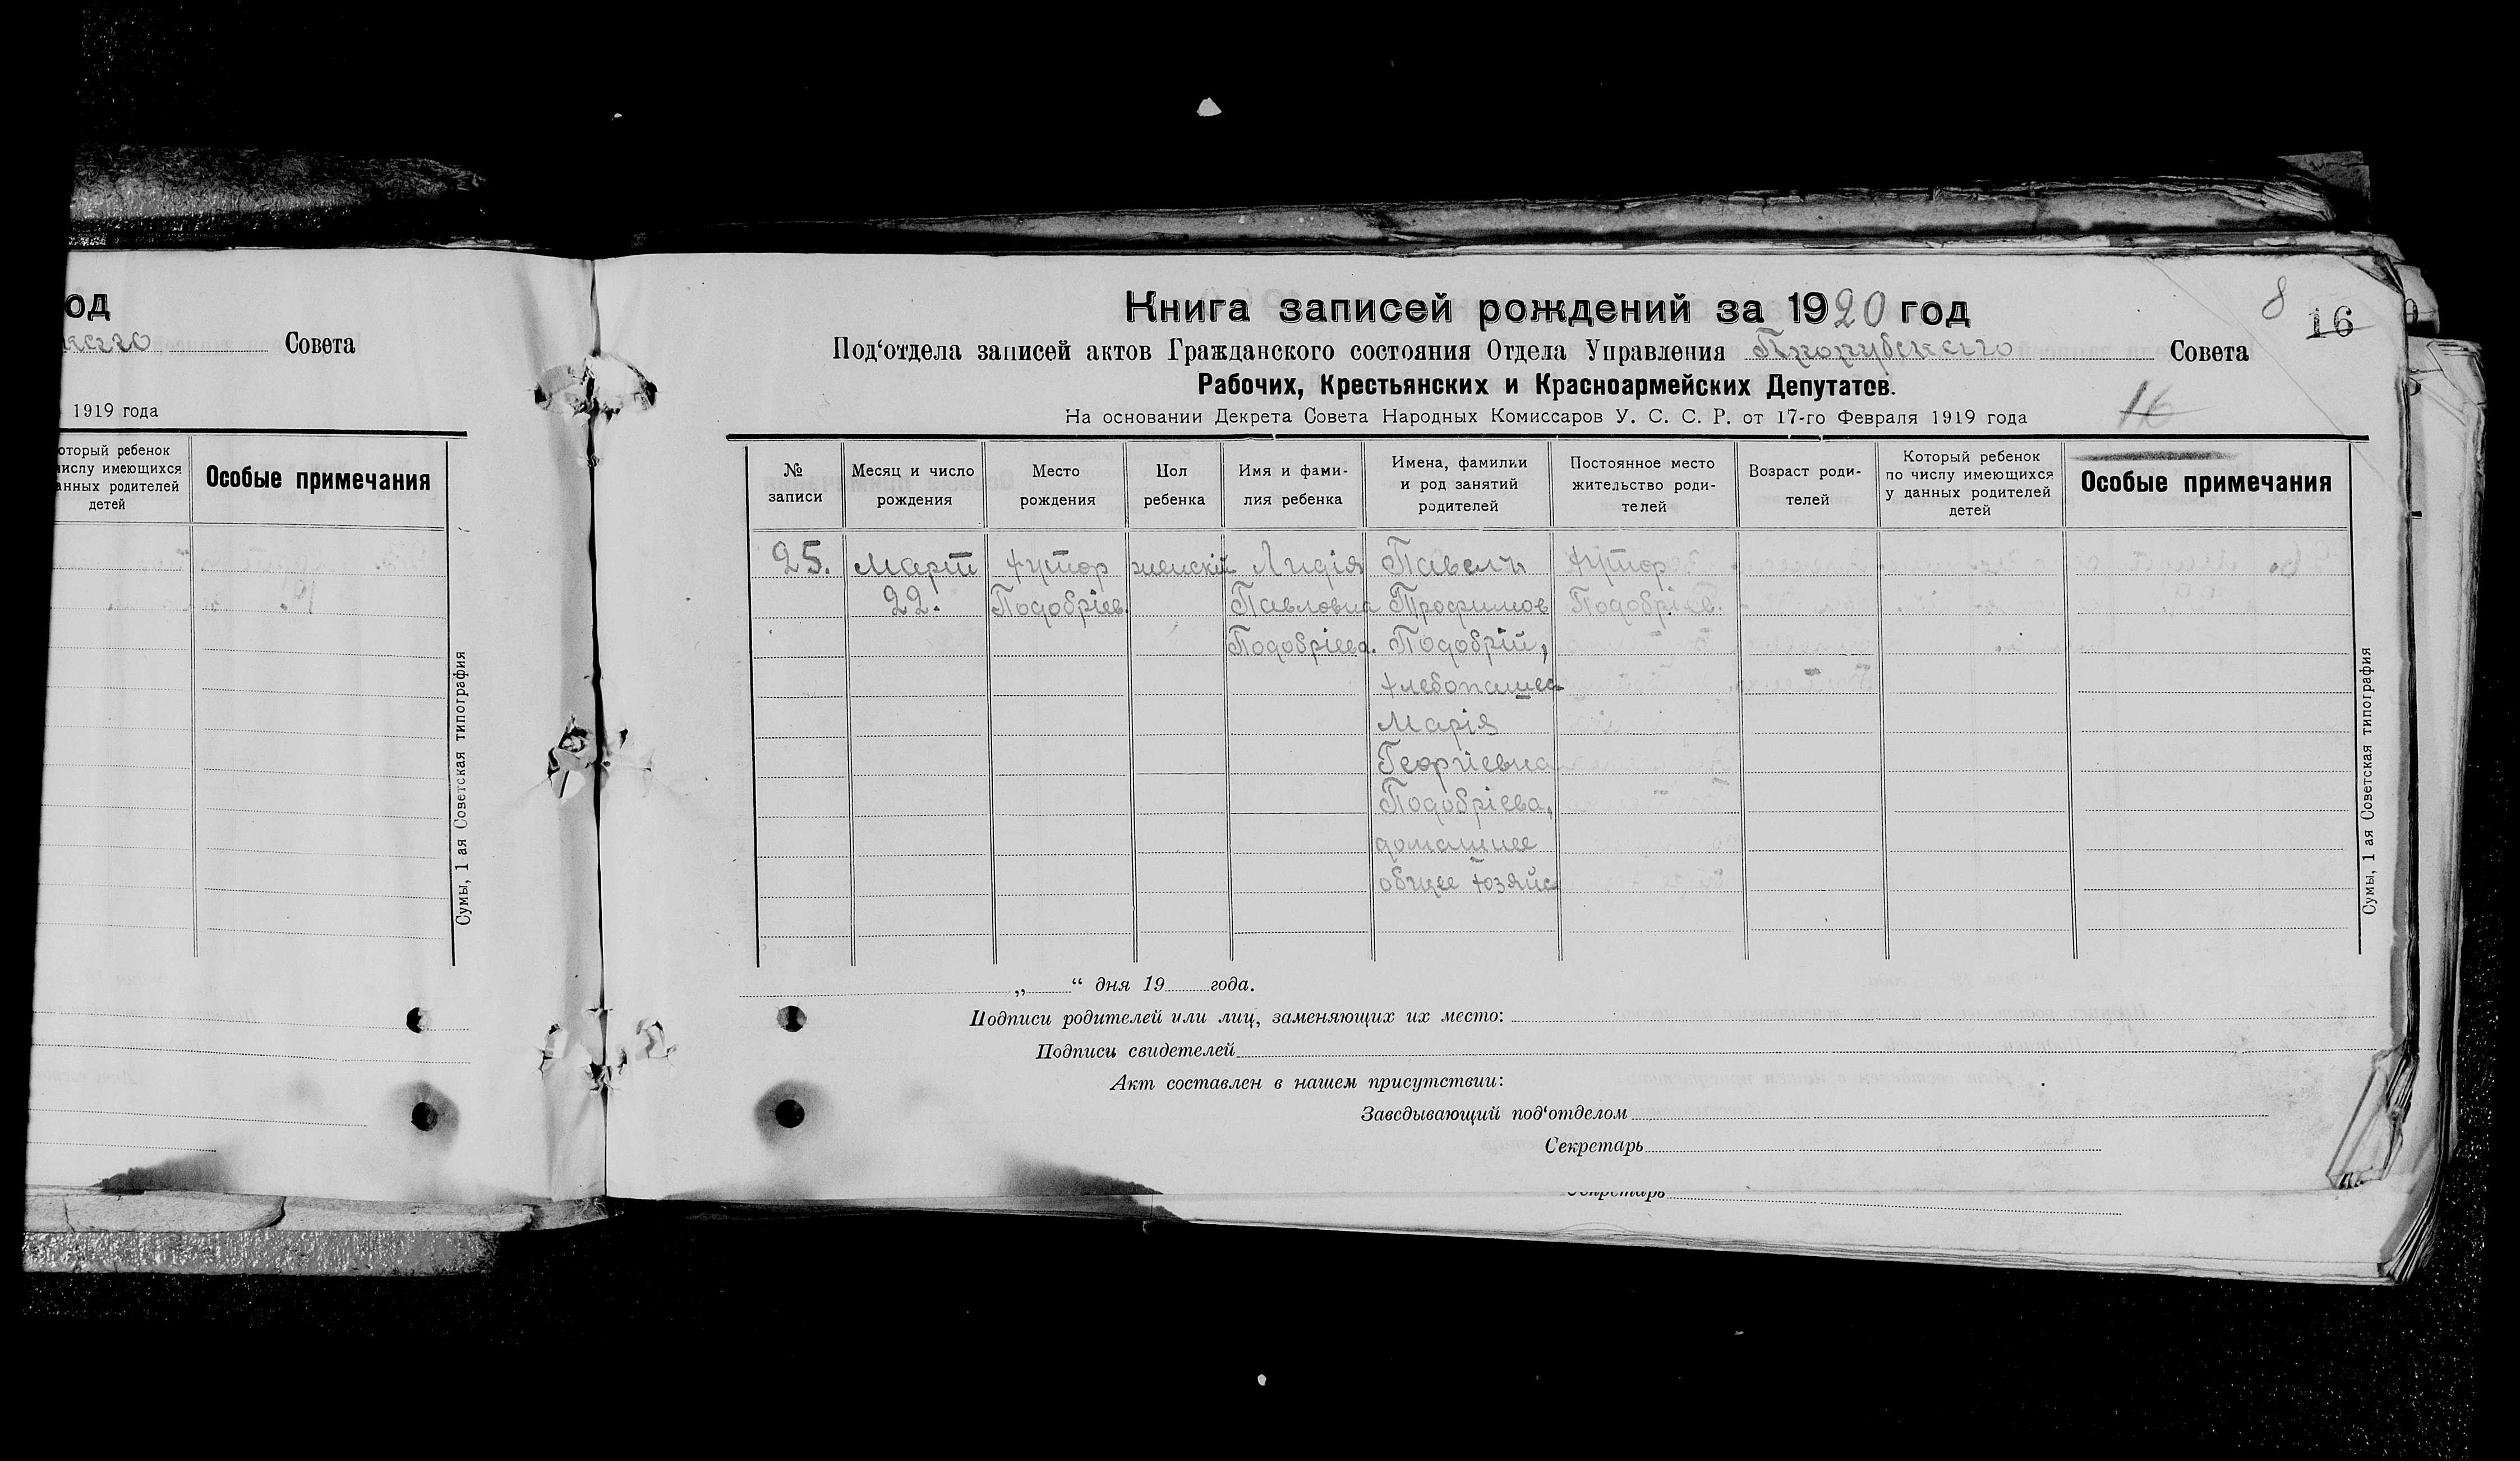 од
Совета
1919 года
который ребенок
числу имеющихся
данных родителей
детей
Особые примечания
19.
Сумы, 1 ая Советская типография
Книга записей рождений за 1920 год
8
16
Под‘отдела записей актов Гражданского состояния Отдела Управления Совета
Рабочих, Крестьянских и Красноармейских Депутатов.
На основании Декрета Совета Народных Комиссаров У. С. С. Р. от 17-го Февраля 1919 года
16
№ записи
Месяц и число рождения
Место рождения
Пол ребенка
Имя и фами-
лия ребенка
Имена, фамилии
и род занятий
родителей
Постоянное место
жительство роди-
телей
Возраст роди-
телей
Который ребенок
по числу имеющихся
у данных родителей
детей
Особые примечания
25. Март хутор женскій Лидія Павелъ хутор
22. Подобріев. Павловна Трофимов Подобріев.
Подобріева. Подобрій,
хлебопашец
Марія
Георгіевна
Подобріева,
домашнее
общее хозяйс
Сумы, 1 ая Советская типография
„ “ дня 19 года.
Подписи родителей или лиц, заменяющих их место:
Подписи свидетелей
Акт составлен в нашем присутствии:
Заведывающий под‘отделом
Секретарь
Секретарь